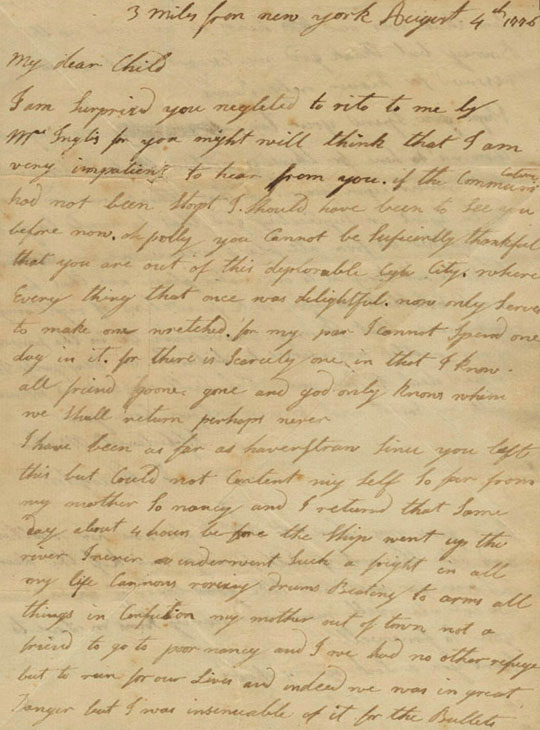 3 miles from new york August 4th 1776
My dear Child
I am Surprizd you negleted to rito to me by
Mrs Inglis for you might will think that I am
very impatient to hear from you. if the Communi
Cation
had not been Stopt I should have been to See you
before now. oh polly you Cannot be Suficiently thankful
that you are out of this deplorable City. where
Every thing that once was delightful. now only Serves
to make one wretched. for my par I cannot Spend one
day in it. for there is Scarcely one in that I know.
all friend goone, gone and god only knows whom
we Shall return perhaps never
I have been as far as haverstraw Since you left
this but Could not Content my Self So far from
my mother So nancy and I returnd that Same
Day about 4 hours before the Ship went up the
river I never underwent Such a fright in all
my life Cannons roring Drums Beating to arms all
things in Confusion my mother out of town not a
friend to go to poor nancy and I we had no other refuge
but to run for our Lives and indeed we was in great
Danger but I was insencable of it for the Bullets